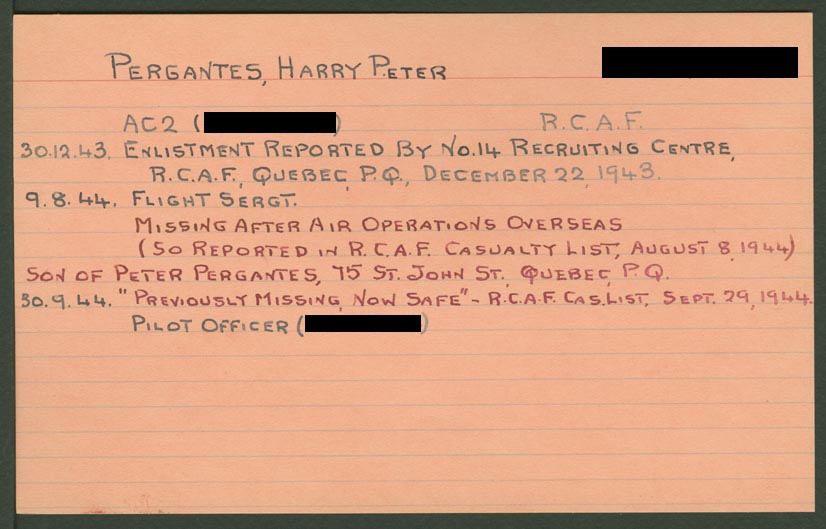 PERGANTES, HARRY PETER
AC2 ( ) R.C.A.F.
30.12.43. ENLISTMENT REPORTED BY NO.14 RECRUITING CENTRE,
R.C.A.F., QUEBEC, P.Q., DECEMBER 22, 1943.
9.8.44. FLIGHT SERGT.
MISSING AFTER AIR OPERATIONS OVERSEAS
(SO REPORTED IN R.C.A.F. CASUALTY LIST, AUGUST 8, 1944)
SON OF PETER PERGANTES, 75 ST. JOHN ST., QUEBEC, P.Q.
30.9.44. "PREVIOUSLY MISSING, NOW SAFE" - R.C.A.F. CAS.LIST, SEPT. 29, 1944.
PILOT OFFICER ( )